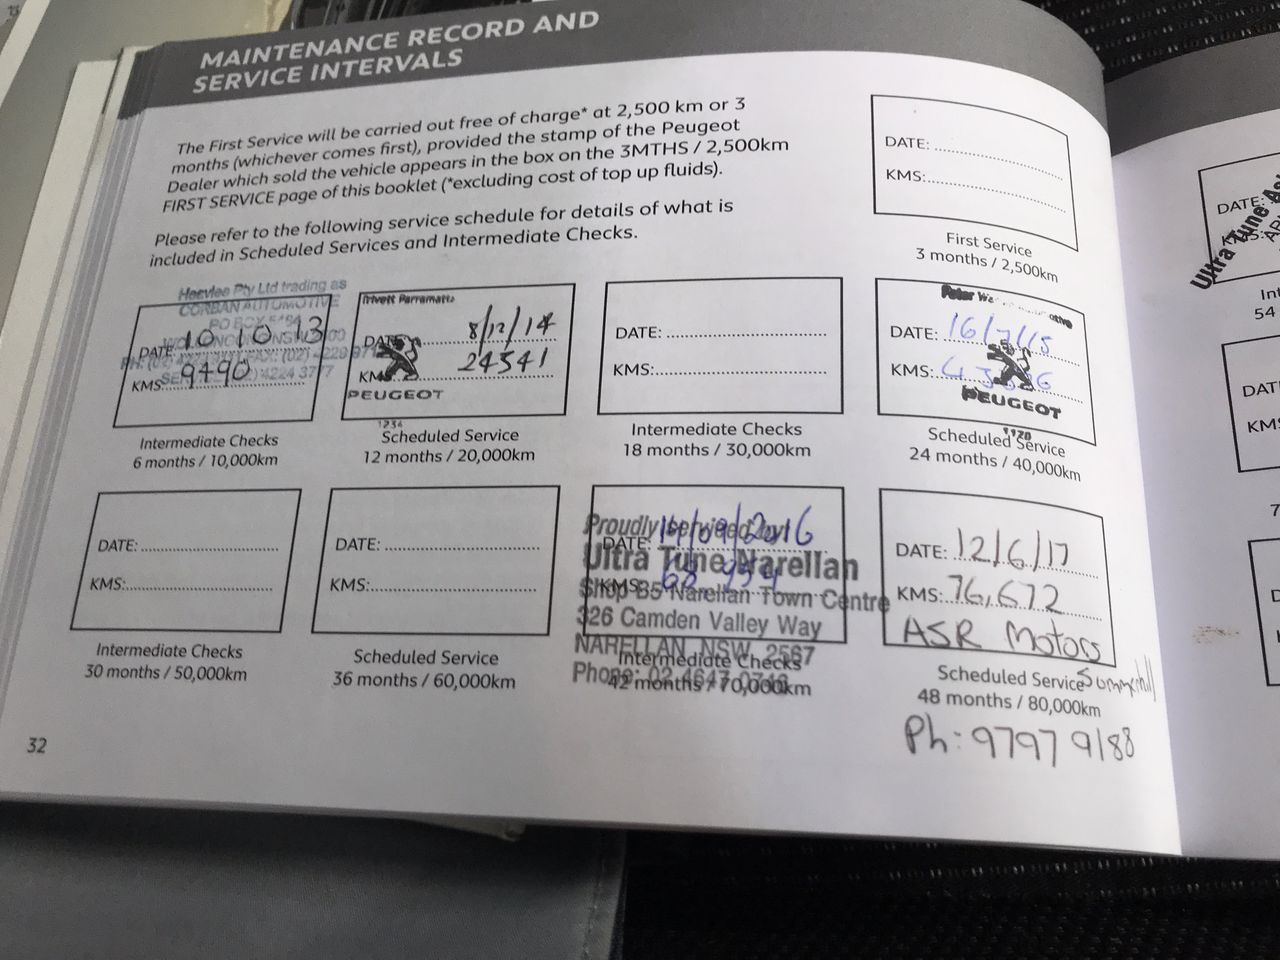 MAINTENANCE RECORD AND
SERVICE INTERVALS
The First Service will be carried out free of charge* at 2,500 km or 3
months (whichever comes first), provided the stamp of the Peugeot
Dealer which sold the vehicle appears in the box on the 3MTHS / 2,500km
FIRST SERVICE page of this booklet (*excluding cost of top up fluids).
Please refer to the following service schedule for details of what is
included in Scheduled Services and Intermediate Checks.
DATE:
KMS:
First Service
3 months / 2,500km
Heevlee Pty Ltd trading as
CORBAN AUTOMOTIVE
PO BOX
DATE: 10 10 13
KMS: 9490
4224 3777
Intermediate Checks
6 months / 10,000km
Trivett Parramatta
DATE: 8/12/14
KMS: 24541
PEUGEOT
1234
Scheduled Service
12 months / 20,000km
DATE:
KMS:
Intermediate Checks
18 months / 30,000km
Peter
DATE: 16/7/15
KMS:
PEUGEOT
Scheduled Service
24 months / 40,000km
DATE:
KMS:
Intermediate Checks
30 months / 50,000km
DATE:
KMS:
Scheduled Service
36 months / 60,000km
Proudly serviced by
DATE: /09/2016
Ultra Tune Narellan
KMS:
Shop B5 Narellan Town Centre
326 Camden Valley Way
NARELLAN NSW 2567
Phone: 02 4647
Intermediate Checks
42 months / 70,000km
DATE: 12/6/17
KMS: 76,672
ASR Motors
Summerhill
Scheduled Service
48 months / 80,000km
Ph: 9797 9188
32
DATE:
Ultra Tune
Int
54
DATE
KMS
7
D